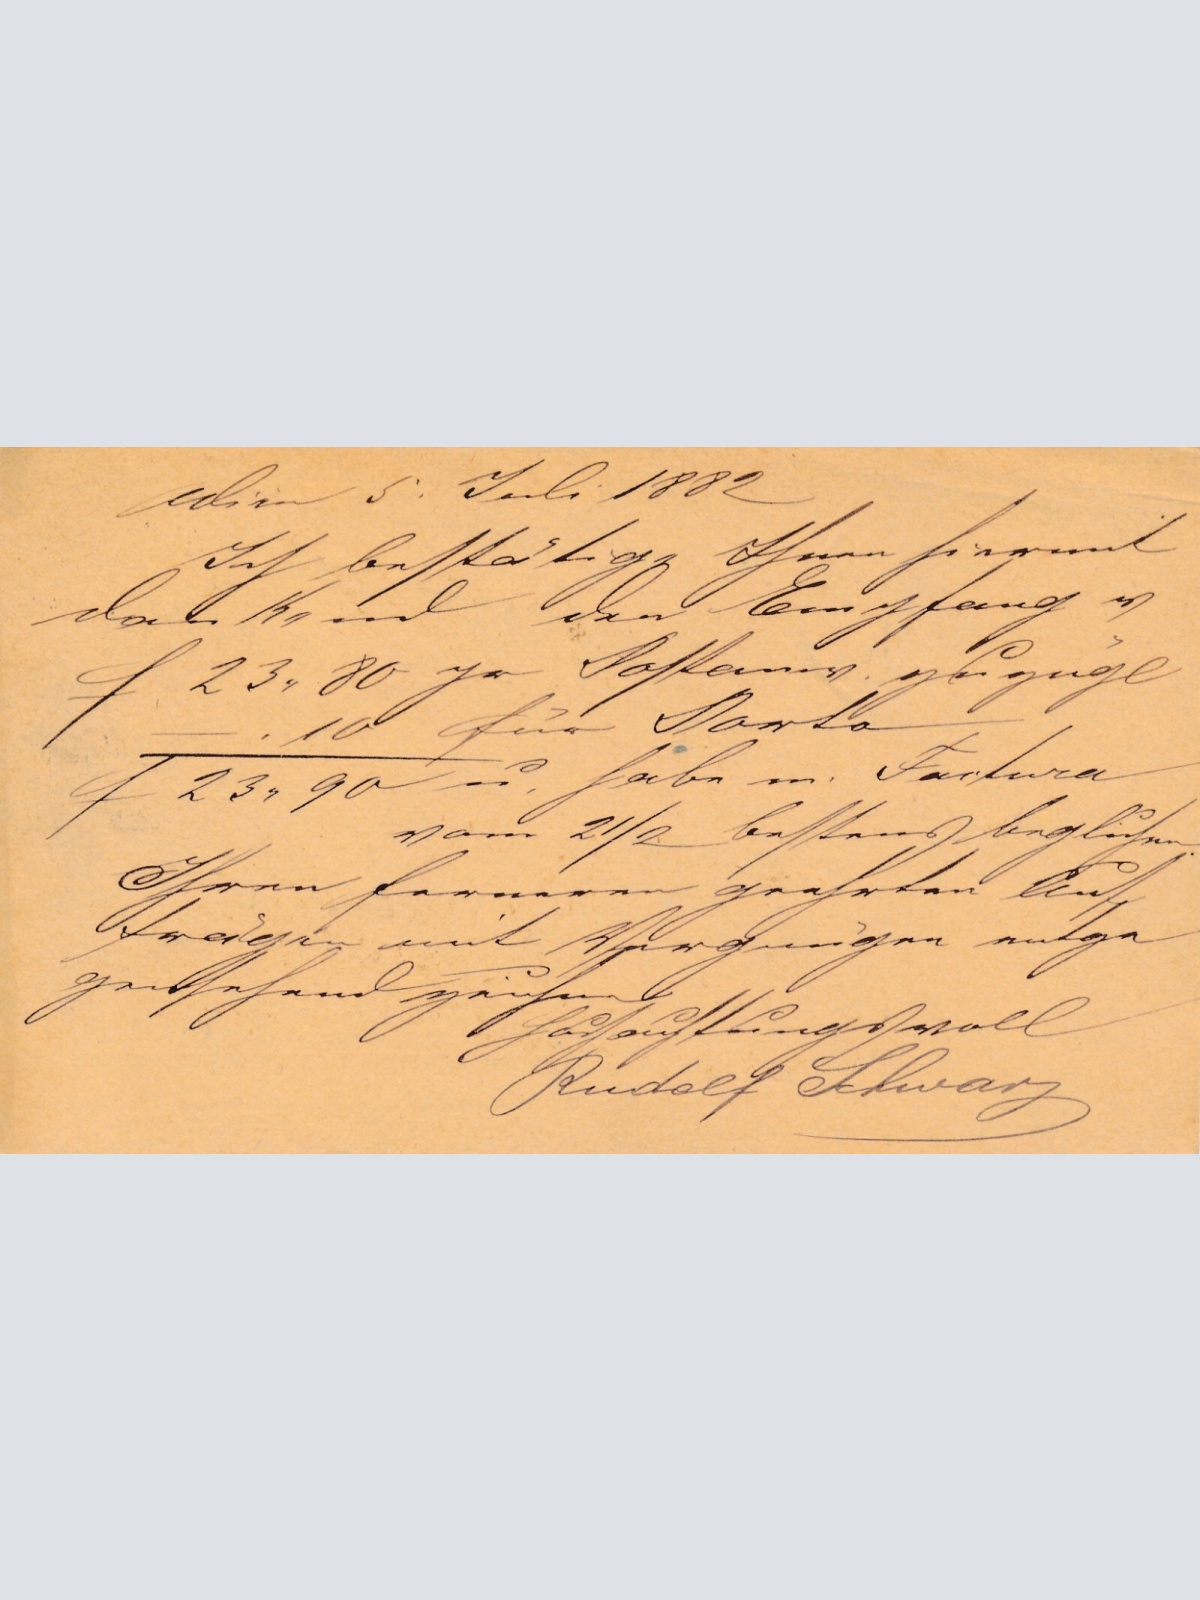 Wien 5. Juli 1882
Ich bestätige Ihnen hiermit
dankend den Empfang v
f 23,, 80 pr Postanw. zuzügl
— . 10 für Porto
f 23,, 90 u. habe m. Factura
vom 21/2 bestens beglichen.
Ihren ferneren geehrten Auf
trägen mit Vergnügen entge
gensehend zeichne
hochachtungsvoll
Rudolf Schwarz